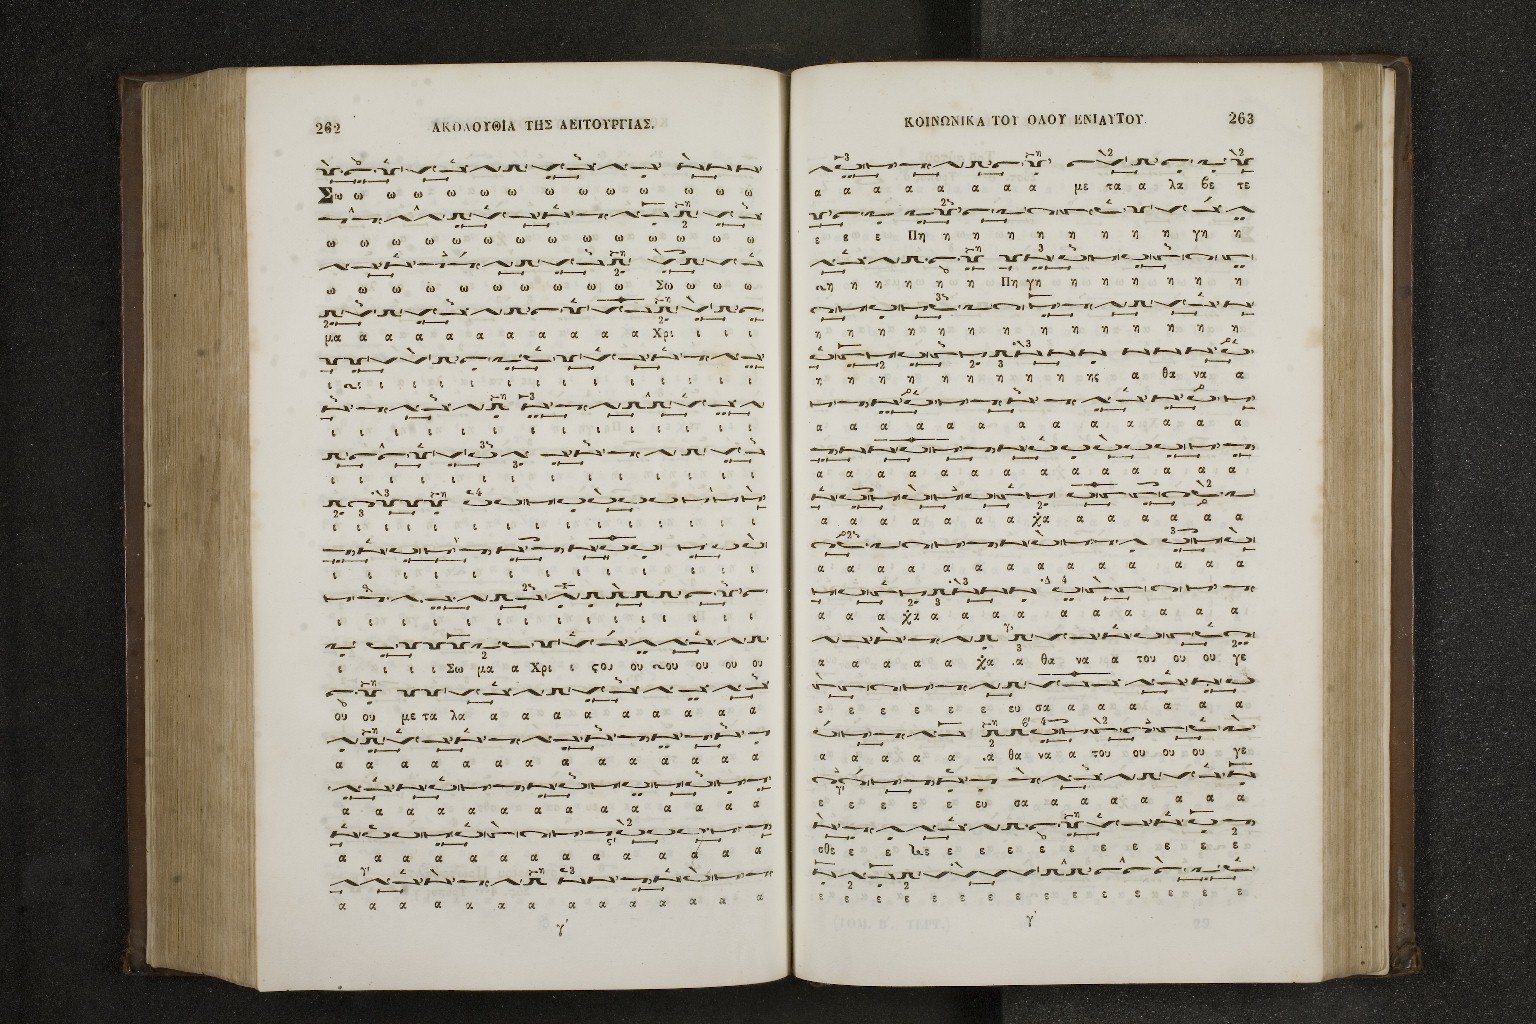 262
ΑΚΟΛΟΥΘΙΑ ΤΗΣ ΛΕΙΤΟΥΡΓΙΑΣ.
Σω ω ω ω ω ω ω ω ω ω ω ω ω ω
ω ω ω ω ω ω ω ω ω ω ω ω ω ω
ω ω ω ω ω ω ω ω ω ω Σω ω ω ω
μα α α α α α α α α α α Χρι ι ι ι
ι ι ι ι ι ι ι ι ι ι ι ι ι ι
ι ι ι ι ι ι ι ι ι ι ι ι ι
ι ι ι ι ι ι ι ι ι ι ι ι ι
ι ι ι ι ι ι ι ι ι ι ι ι ι ι
ι ι ι ι ι ι ι ι ι ι ι ι
ι ι ι ι ι ι ι ι ι ι ι ι ι ι
ι ι ι ι Σω μα α Χρι ι ςου ου ου ου ου ου
ου ου με τα λα α α α α α α α α α
α α α α α α α α α α α α α
α α α α α α α α α α α α α α
α α α α α α α α α α α α α
α α α α α α α α α α α α α
γ'
ΚΟΙΝΩΝΙΚΑ ΤΟΥ ΟΛΟΥ ΕΝΙΑΥΤΟΥ.
263
α α α α α α α α με τα α λα βε τε
ε ε ε Πη η η η η η η η η γη η
η η η η η η Πη γη η η η η η η
η η η η η η η η η η η η η η
η η η η η η η η ης α θα να α
α α α α α α α α α α α α
α α α α α α α α α α α α α α
α α α α α α α χα α α α α α α
α α α α α α α α α α α α α
α α α χα α α α α α α α α α
α α α α α χα α θα να α του ου ου γε
ε ε ε ε ε ε ευ σα α α α α α α
α α α α α α α θα να α του ου ου ου γε
ε ε ε ε ε ευ σα α α α α α α α
σθε ε ε ε ε ε ε ε ε ε ε ε ε
ε ε ε ε ε ε ε ε ε ε ε ε ε ε ε
γ'